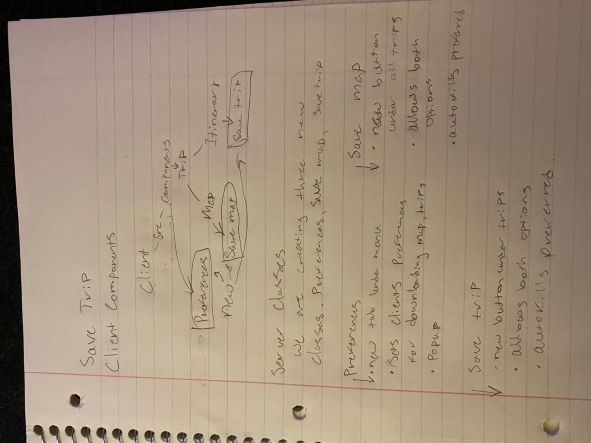 Save Trip
Client Components
Client
Src
Components
Trip
Preferences
Map
Itinerary
new
Save map
Save trip
Server Classes
We are creating three new
classes, Preferences, Save map, Save trip
Preferences
• new tab under menu
• Sets clients Preferences
for downloading map, trips
• Popup
Save map
• new button
under all trips
• allows both
options
• autofills preferred
Save trip
• new button under trips
• allows both options
• autofills preferred.